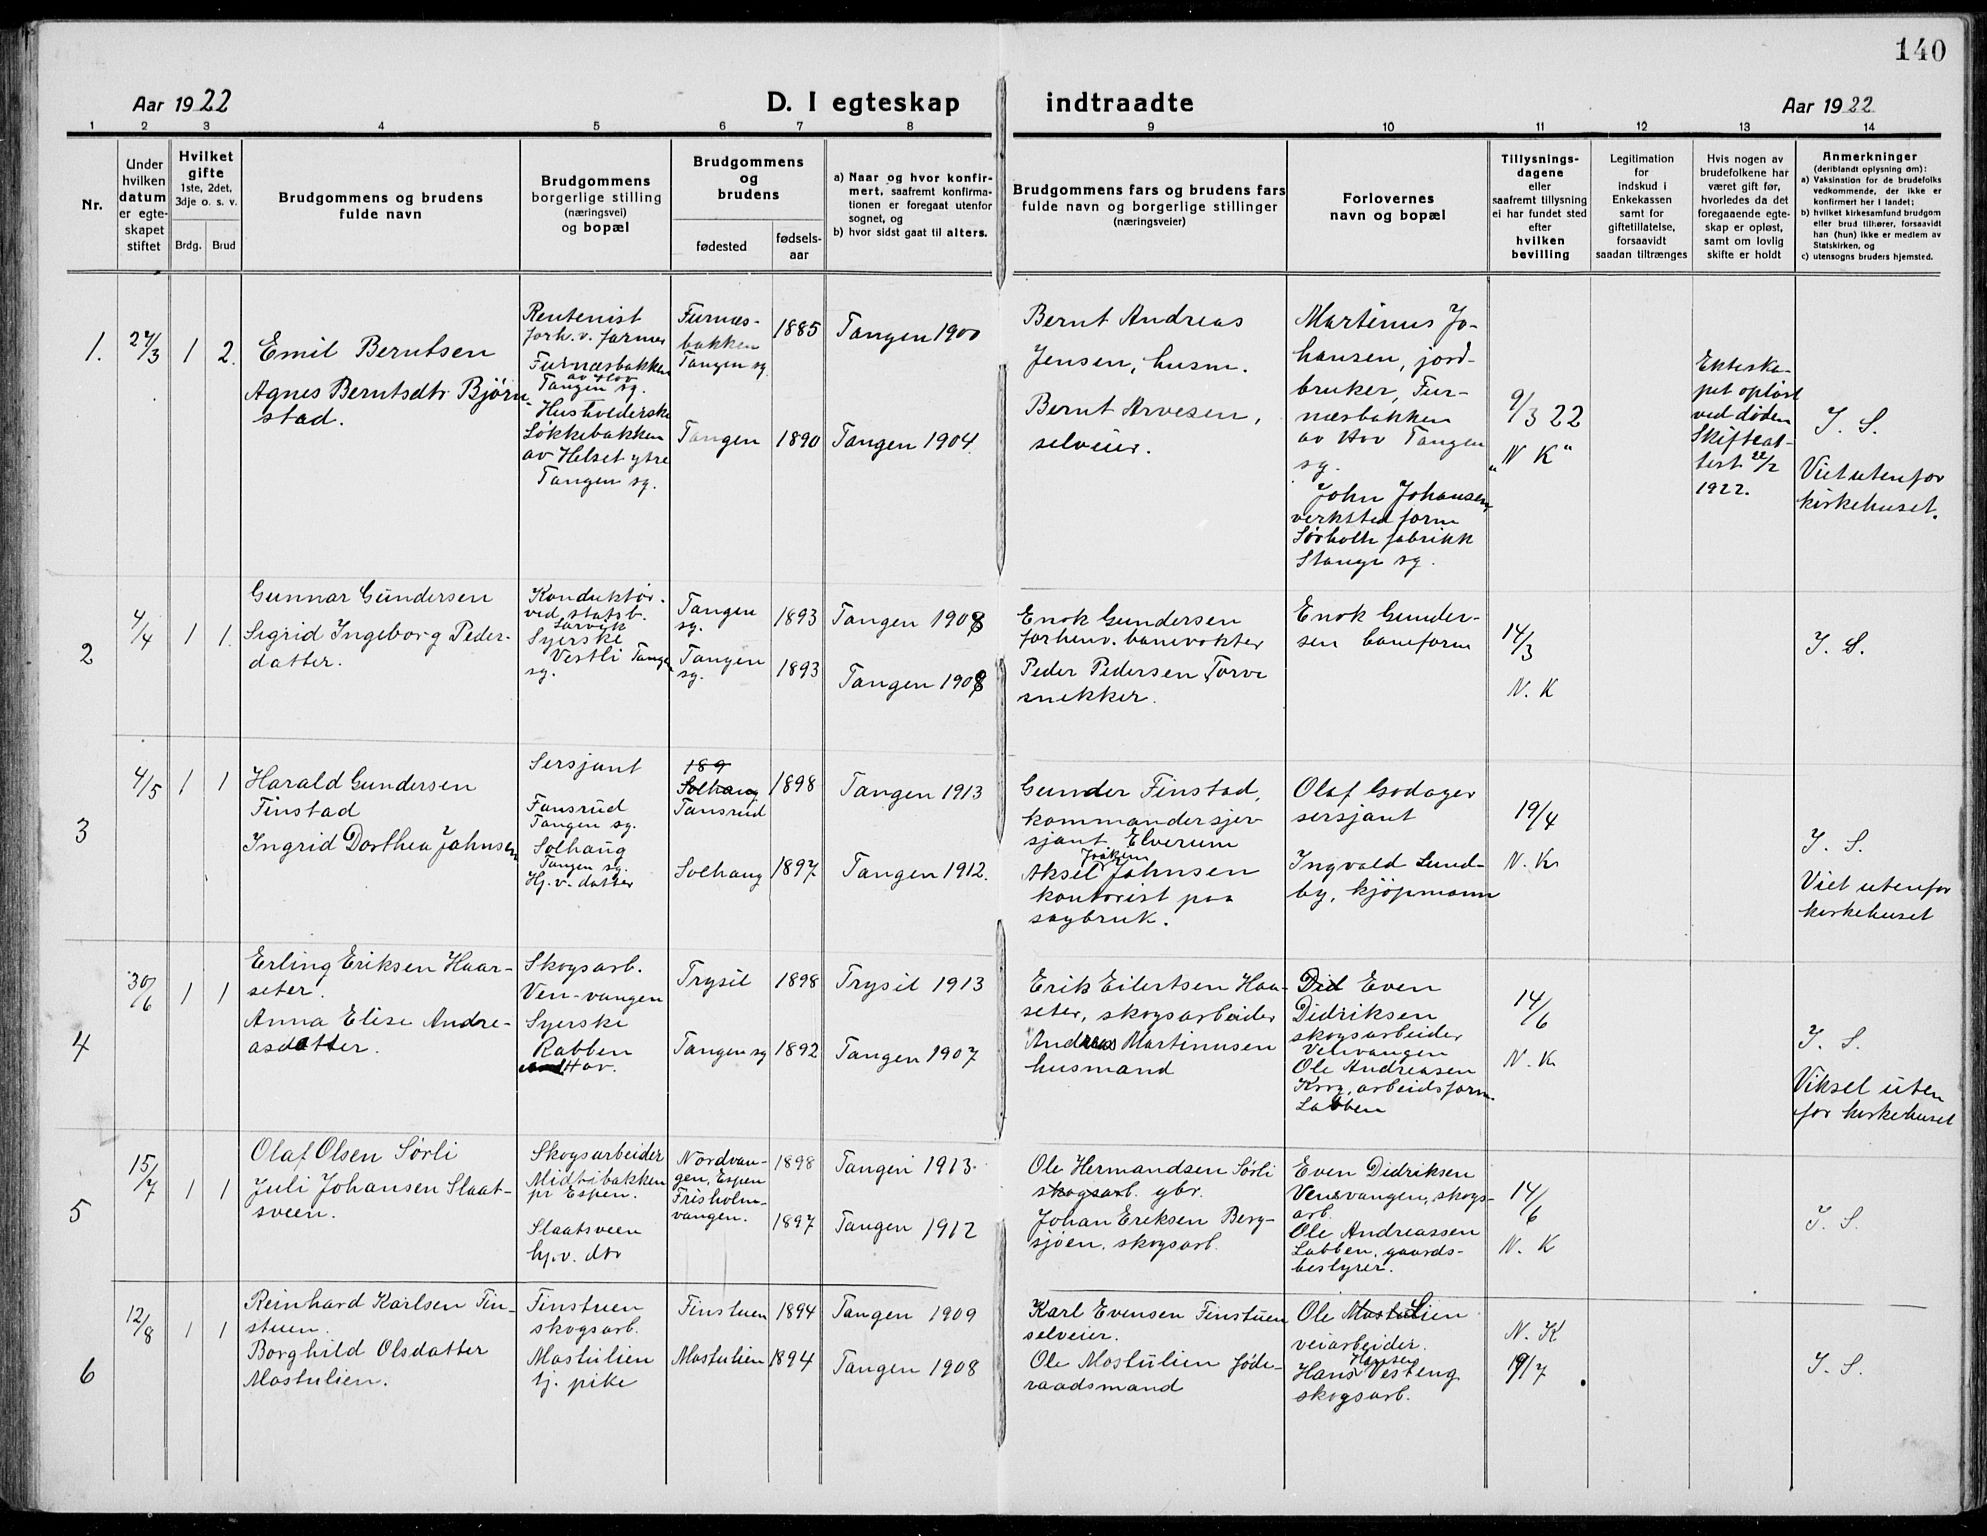 140
Aar 1922
D. I egteskap indtraadte
Aar 1922
1 2 3 4 5 6 7 8 9 10 11 12 13 14
Nr.
Under
hvilken
datum
er egte-
skapet
stiftet
Hvilket
gifte
1ste, 2det,
3dje o. s. v.
Brdg. Brud
Brudgommens og brudens
fulde navn
Brudgommens
borgerlige stilling
(næringsvei)
og bopæl
Brudgommens
og
brudens
fødested
fødsels-
aar
a) Naar og hvor konfir-
mert, saafremt konfirma-
tionen er foregaat utenfor
sognet, og
b) hvor sidst gaat til alters.
Brudgommens fars og brudens fars
fulde navn og borgerlige stillinger
(næringsveier)
Forlovernes
navn og bopæl
Tillysnings-
dagene
eller
saafremt tillysning
ei har fundet sted
efter
hvilken
bevilling
Legitimation
for
indskud i
Enkekassen
samt for
giftetillatelse,
forsaavidt
saadan tiltrænges
Hvis nogen av
brudefolkene har
været gift før,
hvorledes da det
foregaaende egte-
skap er opløst,
samt om lovlig
skifte er holdt
Anmerkninger
(deriblandt oplysning om):
a) Vaksination for de brudefolks
vedkommende, der ikke er
konfirmert her i landet;
b) hvilket kirkesamfund brudgom
eller brud tilhører, forsaavidt
han (hun) ikke er medlem av
Statskirken, og
c) utensogns bruders hjemsted.
1.
27/3
1 2.
Emil Berntsen
Agnes Berntsdtr Bjørn-
stad.
Rentenist
forh. v. farmer
Furnæsbakken
av Hov
Tangen sg.
Husholderske
Løkkebakken
av Helset ytre
Tangen sg.
Furnæs-
bakken
Tangen sg.
1885
Tangen 1900
Tangen
1890
Tangen 1904.
Bernt Andreas
Jensen, husm.
Bernt Arvesen,
selveier.
Martinus Jo-
hansen, jord-
bruker, Fur-
næsbakken
av Hov Tangen
sg.
John Johansen,
verksted form
Sørholte fabrikk
Stange sg.
9/3 22
"N K"
Ekteska-
pet opløst
ved døden
Skifteat-
test 22/2
1922.
J. S.
Viet utenfor
kirkehuset.
2
4/4
1 1.
Gunnar Gundersen
Sigrid Ingeborg Peder-
datter.
Konduktør.
ved statsb.
Larvik
Syerske
Vestli Tangen
sg.
Tangen
sg.
1893
Tangen 1908
Tangen
sg.
1893
Tangen 1908
Enok Gundersen
forhenv. banevokter
Peder Pedersen Torve
snekker.
Enok Gunder-
sen baneform
14/3
N. K
J. S.
3
4/5
1 1
Harald Gundersen
Finstad
Ingrid Dorthea Johnsen
Sersjant
Fansrud
Tangen sg.
Solhaug
Tangen sg.
Hj. v. datter
189
Solhaug
Fansrud
1898
Tangen 1913
Solhaug
1897
Tangen 1912.
Gunder Finstad,
kommandersjer
sjant Elverum
Joakim
Aksel Johnsen
kontorist paa
sagbruk.
Olaf Godager
sersjant
Ingvald Lund-
by, kjøpmann
19/4
N. K
J. S.
Viet utenfor
kirkehuset
4
30/6
1 1
Erling Eriksen Haar-
seter.
Anna Elise Andre-
asdatter.
Skogsarb.
Ven-vangen
Syerske
Rabben
Hov.
Trysil
1898
Trysil 1913
Tangen sg
1892
Tangen 1907
Erik Eilertsen Haa-
seter, skogsarbeider
Andreas Martinusen
husmand
Did Even
Didriksen
skogsarbeider
Venvangen
Ole Andreasen
Korg, arbeidsform.
Labben
14/6
N. K
J. S.
Viksel uten
for kirkehuset
5
15/7
1 1
Olaf Olsen Sørli
Juli Johansen Slaat-
sveen.
Skogsarbeider
Midtibakken
pr Espen.
Slaatsveen
hj. v. dtr
Nordvan-
gen, Espen
Frisholm-
vangen.
1898
Tangen 1913.
1897
Tangen 1912
Ole Hermandsen Sørli
skogsarb. gbr.
Johan Eriksen Berg-
sjøen, skogsarb.
Even Didriksen
Venvangen, skogs-
arb.
Ole Andreassen
Labben, gaards-
bestyrer.
14/6
N. K
J. S.
6
12/8
1 1
Reinhard Karlsen Fin-
stuen.
Borghild Olsdatter
Mostulien.
Finstuen
skogsarb.
Mostulien
tj. pike
Finstuen
1894
Tangen 1909
Mostulien
1894
Tangen 1908
Karl Evensen Finstuen
selveier.
Ole Mostulien føde-
raadsmand
Ole Mostulien
veiarbeider.
Hansen
Hans Vesteng
skogsarb.
N. K
19/7
J. S.